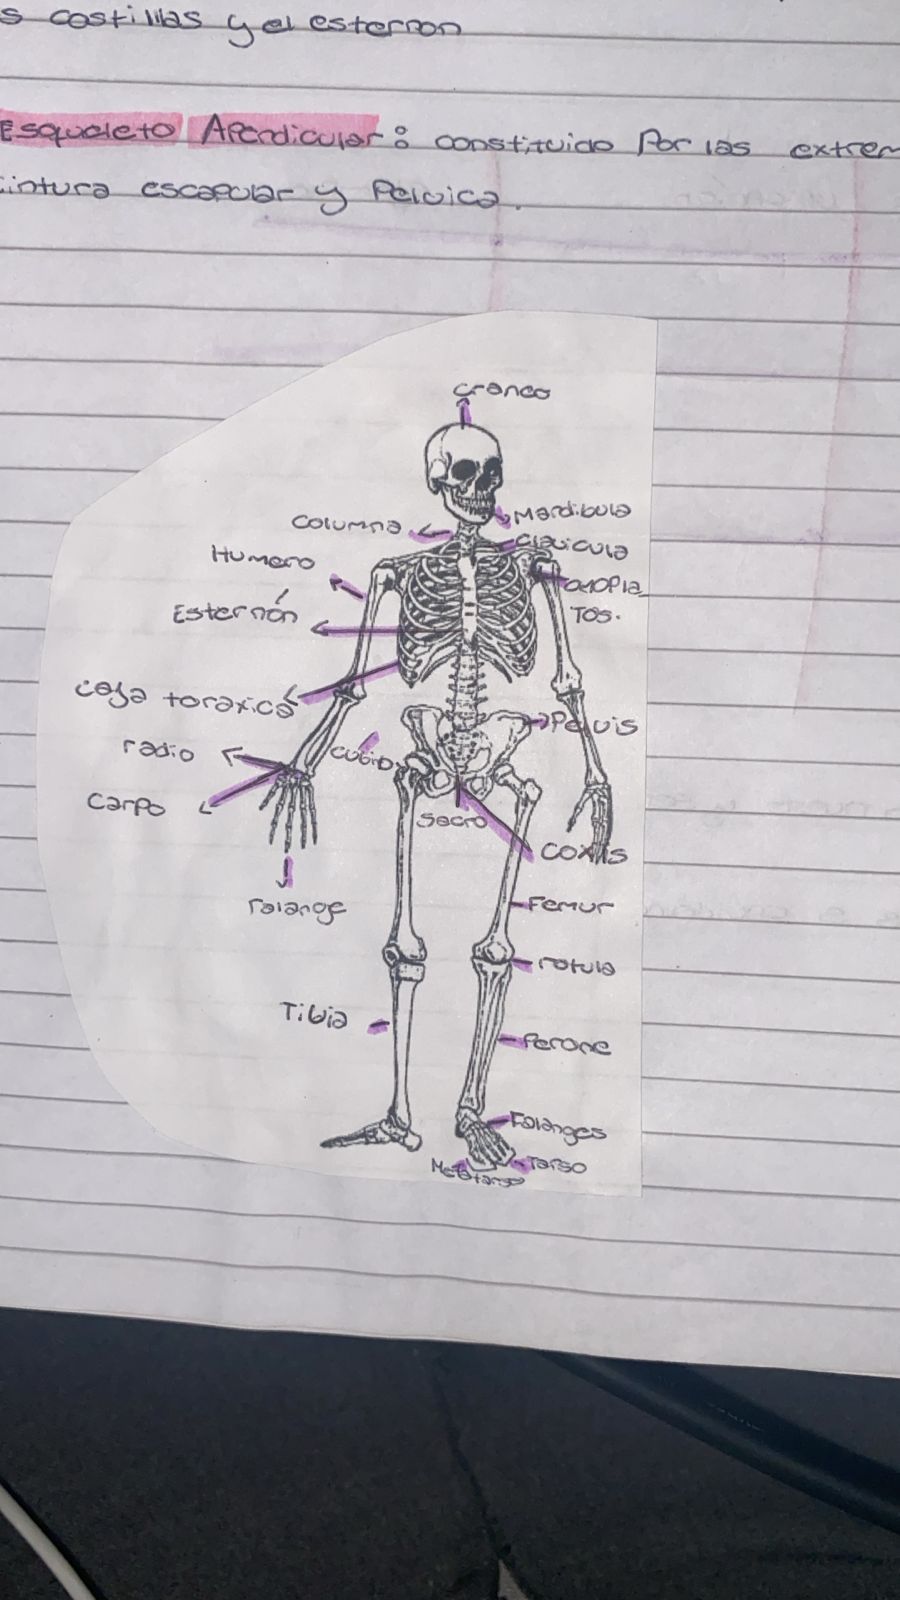 s costillas y el esternon
Esqueleto Apendicular: constituido Por las extrem
cintura escapular y Pelvica.
craneo
Mandibula
Columna
clavicula
Humero
omopla
Tos.
Esternón
caja toraxica
Pelvis
radio
cubito
carpo
Sacro
coxis
Falange
Femur
rotula
Tibia
Perone
Falanges
Tarso
Metatarso